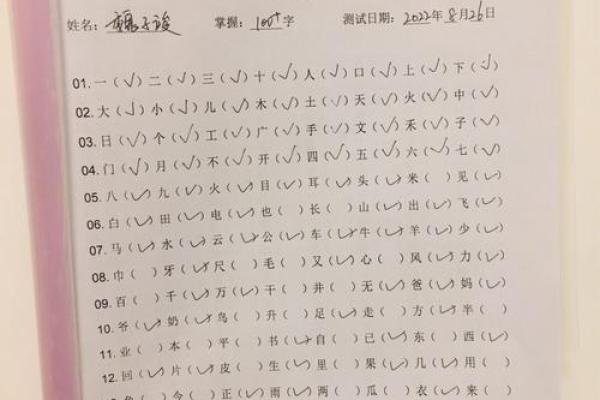 姓名: 子 掌握: 100+字 测试日期: 2022年8月26日
01. 一 (✓) 二 (✓) 三 (✓) 十 (✓) 人 (✓) 口 (✓) 上 (✓) 下 (✓)
02. 大 (✓) 小 (✓) 儿 (✓) 木 (✓) 土 (✓) 天 (✓) 火 (✓) 中 (✓)
03. 日 (✓) 个 (✓) 工 (✓) 广 (✓) 手 (✓) 文 (✓) 禾 (✓) 子 (✓)
04. 门 (✓) 月 (✓) 不 (✓) 开 (✓) 四 (✓) 五 (✓) 六 (✓) 七 (✓)
05. 八 (✓) 九 (✓) 火 (✓) 目 (✓) 耳 (✓) 头 (✓) 米 (✓) 见 (✓)
06. 白 (✓) 田 (✓) 电 (✓) 也 ( ) 长 ( ) 山 (✓) 出 (✓) 飞 (✓)
07. 马 (✓) 水 (✓) 云 (✓) 公 (✓) 车 (✓) 牛 (✓) 羊 (✓) 少 (✓)
08. 巾 ( ) 牙 (✓) 尺 (✓) 毛 ( ) 又 (✓) 心 (✓) 风 (✓) 力 (✓)
09. 百 ( ) 千 (✓) 万 (✓) 干 ( ) 井 ( ) 无 (✓) 爸 (✓) 妈 (✓)
10. 爷 (✓) 奶 (✓) 鸟 (✓) 升 ( ) 足 (✓) 走 (✓) 方 (✓) 半 ( )
11. 业 ( ) 本 ( ) 平 ( ) 书 (✓) 自 ( ) 已 (✓) 东 (✓) 西 (✓)
12. 回 (✓) 片 (✓) 皮 (✓) 生 (✓) 里 (✓) 果 (✓) 几 (✓) 用 (✓)
今 (✓) 正 (✓) 雨 (✓) 两 ( ) 瓜 ( ) 衣 (✓) 来 ( )